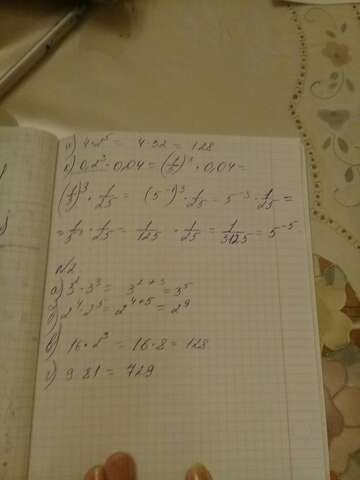 и) 4·2⁵ = 4·32 = 128
к) 0,2³·0,04 = (1/5)³·0,04 =
(1/5)³·1/25 = (5⁻¹)³·1/25 = 5⁻³·1/25 =
= 1/5³·1/25 = 1/125·1/25 = 1/3125 = 5⁻⁵
N2
а) 3²·3³ = 3²⁺³ = 3⁵
б) 2⁴·2⁵ = 2⁴⁺⁵ = 2⁹
в) 16·2³ = 16·8 = 128
г) 9·81 = 729